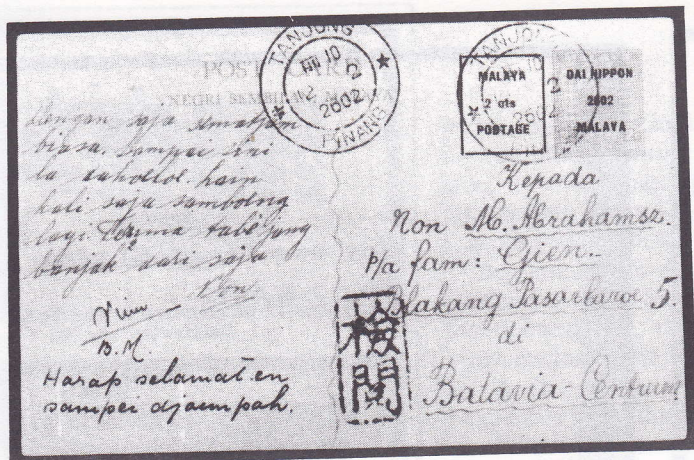 TANJONG
10
12
2602
PINANG
TANJONG
10
2
2602
MALAYA
2 cts
POSTAGE
DAI NIPPON
2602
MALAYA
POST CARD
NEGRI SEMBILAN, MALAYA
dengan saja
biasa. sampai sini
la lain
kali saja samboeng
lagi Terima tabe jang
banjak dari saja
Non
B.M.
Harap selamat en
sampei djoempah.
Kepada
Non M. Abrahamsz.
P/a fam: Gien.
Blakang Pasarbaroe 5.
di
Batavia-Centrum
検
閲